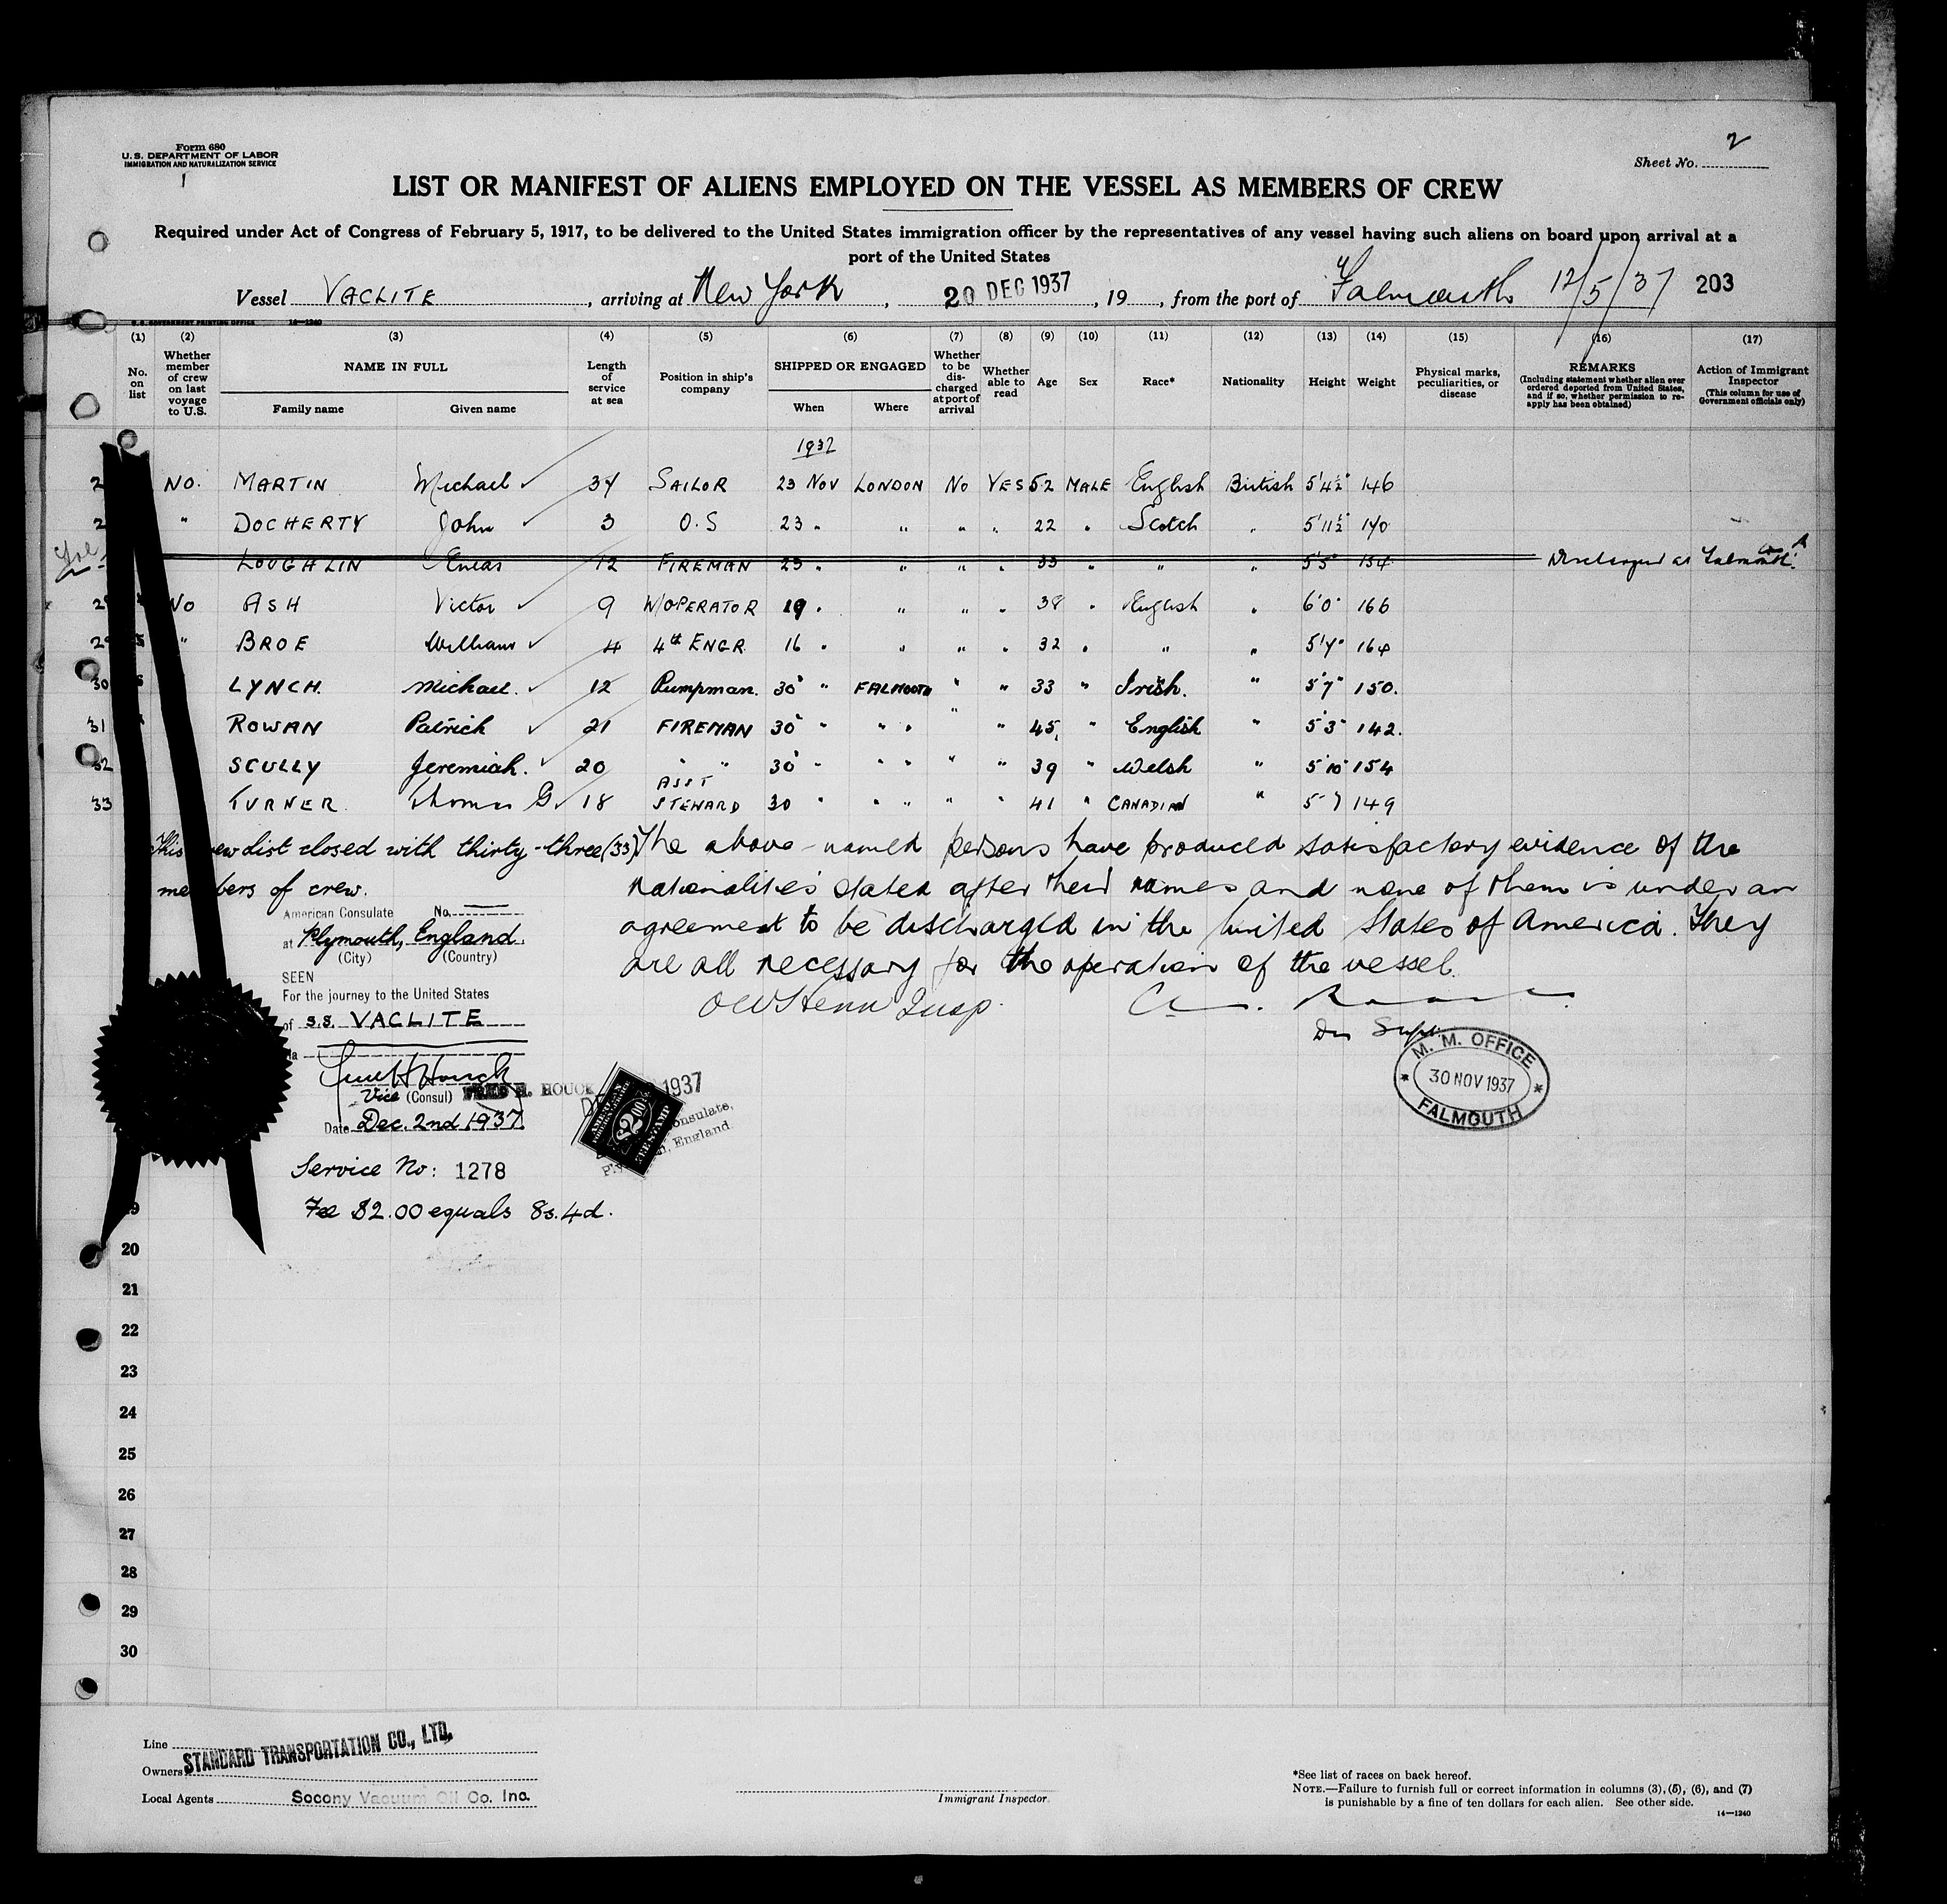 Form 680
U.S. DEPARTMENT OF LABOR
IMMIGRATION AND NATURALIZATION SERVICE
Sheet No. 2
LIST OR MANIFEST OF ALIENS EMPLOYED ON THE VESSEL AS MEMBERS OF CREW
Required under Act of Congress of February 5, 1917, to be delivered to the United States immigration officer by the representatives of any vessel having such aliens on board upon arrival at a
port of the United States
Vessel VACLITE, arriving at New York, 20 DEC 1937, 19, from the port of Falmouth 12/5/37 203
U.S. GOVERNMENT PRINTING OFFICE 14—1240
(1) (2) (3) (4) (5) (6) (7) (8) (9) (10) (11) (12) (13) (14) (15) (16) (17)
No. on list
Whether member of crew on last voyage to U.S.
NAME IN FULL
Family name Given name
Length of service at sea
Position in ship's company
SHIPPED OR ENGAGED
When Where
Whether to be discharged at port of arrival
Whether able to read
Age
Sex
Race*
Nationality
Height
Weight
Physical marks, peculiarities, or disease
REMARKS
(Including statement whether alien ever ordered deported from United States, and if so, whether permission to reapply has been obtained)
Action of Immigrant Inspector
(This column for use of Government officials only)
1937
2 NO. MARTIN Michael 34 SAILOR 23 NOV LONDON NO YES 52 MALE English British 5'4½" 146
2 " DOCHERTY John 3 O.S 23 " " " " 22 " Scotch " 5'11½" 140
LOUGHLIN Eneas 12 FIREMAN 23 " " " " 33 " " " 5'5" 134 Discharged at Falmouth.
2 No ASH Victor 9 W/OPERATOR 19 " " " " 38 " English " 6'0" 166
29 " BROE William 4 4th ENGR. 16 " " " " 32 " " " 5'7" 164
30 LYNCH. Michael. 12 Pumpman. 30 " FALMOUTH " " 33 " Irish. " 5'7" 150.
31 ROWAN Patrick 21 FIREMAN 30 " " " " " 45 " English " 5'3" 142.
32 SCULLY Jeremiah. 20 " " 30 " " " " " 39 " Welsh " 5'10" 154
33 TURNER Thomas G 18 ASST STEWARD 30 " " " " " 41 " CANADIAN " 5-7 149
This crew list closed with thirty-three (33)
members of crew.
The above-named persons have produced satisfactory evidence of the
nationalities stated after their names and none of them is under an
agreement to be discharged in the United States of America. They
are all necessary for the operation of the vessel.
American Consulate No.
at Plymouth, England.
(City) (Country)
SEEN
For the journey to the United States
of S.S. VACLITE
Vice (Consul)
HOUCK
Date Dec. 2nd 1937.
Service No: 1278
Fee $2.00 equals 8s. 4d.
1937
$2.00
FEE STAMP
England
Insp.
M. M. OFFICE
30 NOV 1937
FALMOUTH
20
21
22
23
24
25
26
27
28
29
30
Line
Owners STANDARD TRANSPORTATION CO., LTD.
Local Agents Socony Vacuum Oil Co. Inc.
Immigrant Inspector.
*See list of races on back hereof.
NOTE.—Failure to furnish full or correct information in columns (3), (5), (6), and (7)
is punishable by a fine of ten dollars for each alien. See other side.
14—1240